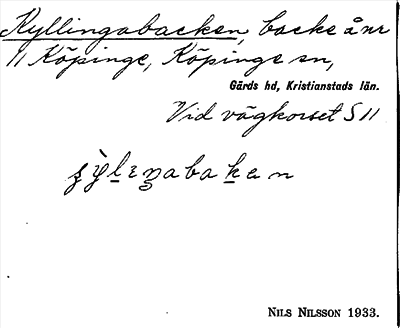 Kyllingabacken, backe å nr
11 Köpinge, Köpinge sn,
Gärds hd, Kristianstads län.
Vid vägkorset S 11
NILS NILSSON 1933.